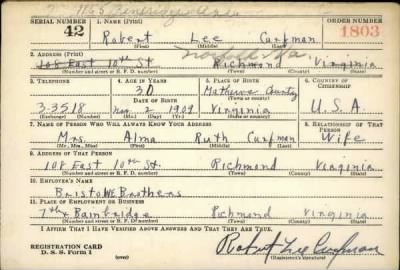 SERIAL NUMBER 1. NAME (Print) ORDER NUMBER
42 Robert Lee Curfman 1803
(First) (Middle) (Last)
2. ADDRESS (Print)
108 East 10th St Richmond Virginia
(Number and street or R. F. D. number) (Town) (County) (State)
3. TELEPHONE 4. AGE IN YEARS 5. PLACE OF BIRTH 6. COUNTRY OF CITIZENSHIP
30 Mathews County
DATE OF BIRTH (Town or county)
3-3518 Nov. 2 1909 Virginia U.S.A.
(Exchange) (Number) (Mo.) (Day) (Yr.) (State or country)
7. NAME OF PERSON WHO WILL ALWAYS KNOW YOUR ADDRESS 8. RELATIONSHIP OF THAT PERSON
Mrs Alma Ruth Curfman Wife
(Mr., Mrs., Miss) (First) (Middle) (Last)
9. ADDRESS OF THAT PERSON
108 East 10th St. Richmond Virginia
(Number and street or R. F. D. number) (Town) (County) (State)
10. EMPLOYER'S NAME
Bristow Brothers
11. PLACE OF EMPLOYMENT OR BUSINESS
7th & Bainbridge Richmond Virginia
(Number and street or R. F. D. number) (Town) (County) (State)
I AFFIRM THAT I HAVE VERIFIED ABOVE ANSWERS AND THAT THEY ARE TRUE.
REGISTRATION CARD
D. S. S. Form 1 Robert Lee Curfman
(Registrant's signature)